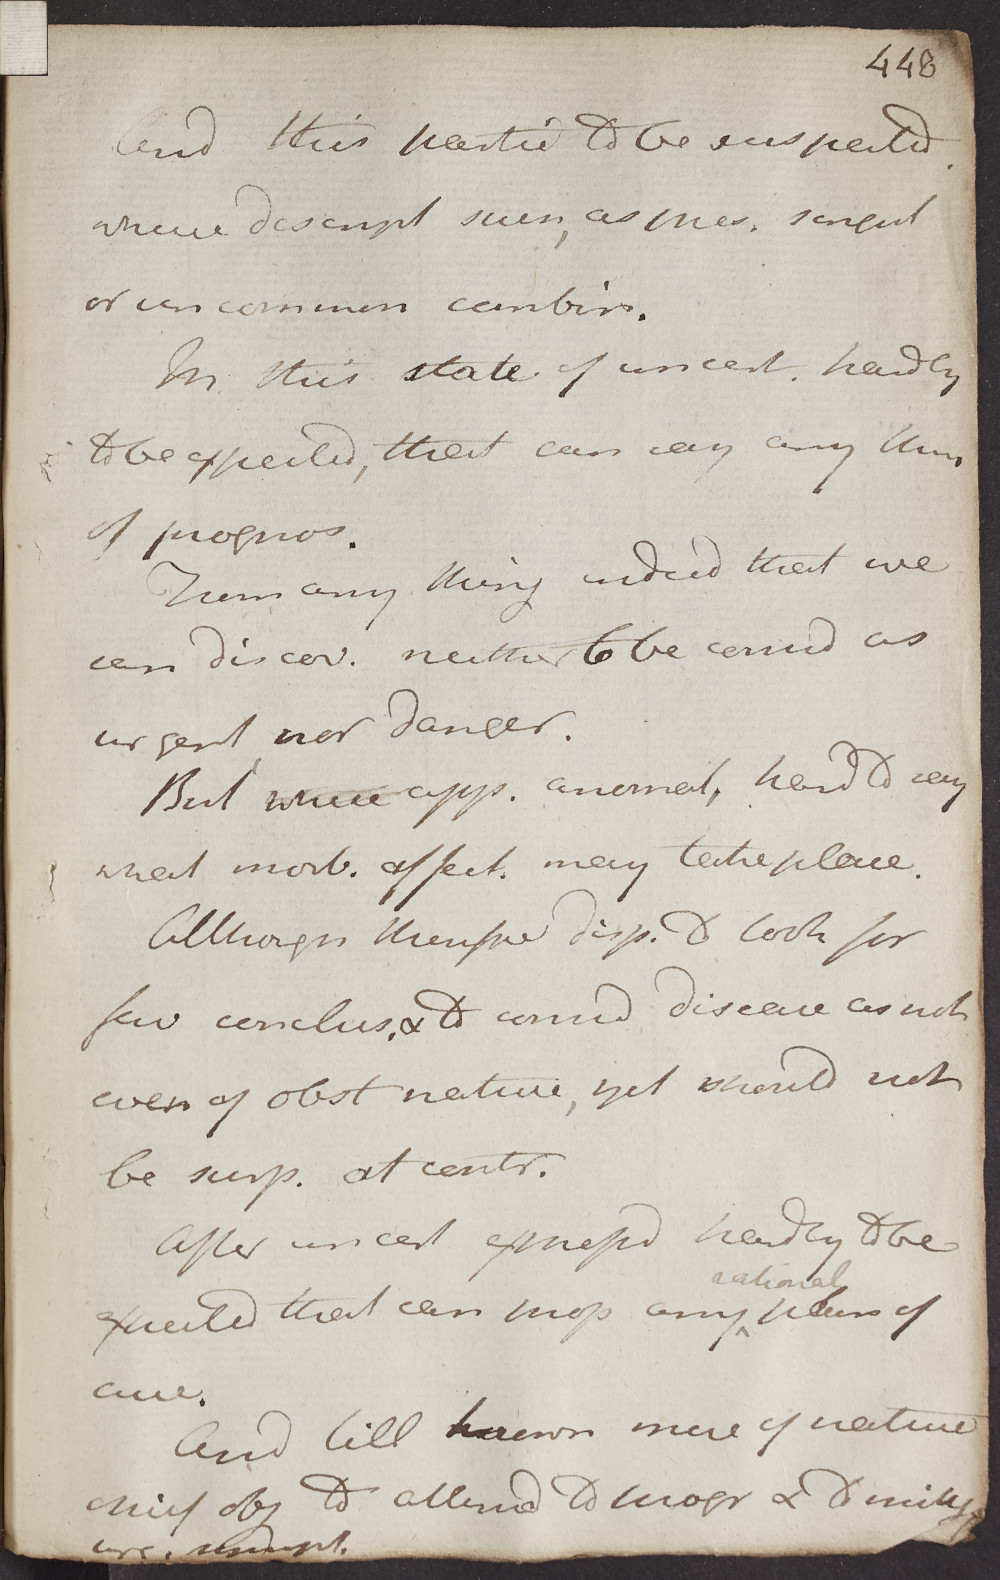 448
And this partic to be suspected.
where descript seen, as pres. singul
or uncommon combin.
In this state of uncert. hardly
to be expected, that can say any thing
of prognos.
From any thing indeed that we
can discov. neither to be consid as
urgent nor danger.
But where app. anomal, hard to say
what morb. affect. may take place.
Although therefore disp. to look for
fav conclus. & to consid disease as not
even of obst nature, yet should not
be surp. at contr.
After uncert expressd hardly to be
rational
expected that can prop any plan of
cure.
And till known more of nature
chief obj to attend to progr & to mitig
urg. sympt.